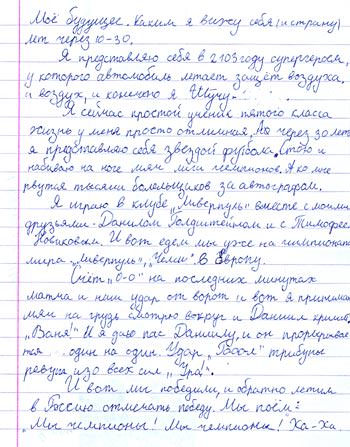 Моё будущее. Каким я вижу себя (и страну)
лет через 10-30.
Я представляю себя в 2103 году супергероем,
у которого автомобиль летает защёт воздуха,
и воздух, и конечено я Шучу.
Я сейчас простой ученик пятого класса
жизнь у меня просто отлишная. Но через 30 лет
я представляю себя звездой футбола. Стою и
набиваю на ноге мяч лиги чемпионов. А ко мне
рвутся тысячи болельщиков за автографом.
Я играю в клубе „Ливерпуль" вместе с моими
друзьями - Данилом Голдштейном и с Тимофеем
Новиковым. И вот едем мы уже на чемпионат
мира „Ливерпуль", „Челси" в Европу.
Счёт „0-0" на последних минутах
матча и наш удар от ворот и вот я принимаю
мяч на грудь смотрю вокруг и Даниил кричит,
„Ваня!" И я даю пас Данилу, и он прорывает
тся один на один. Удар „Гооол" трибуны
ревут изо всех сил „Ура".
И вот мы победили, и обратно летим
в Россию отмечать победу. Мы поём:
„Мы чемпионы! Мы чемпионы! Ха-Ха.